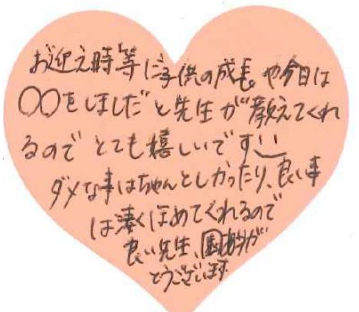 お迎え時等に子供の成長。や今日は
〇〇をしました"と先生が教えてくれ
るのでとても嬉しいです
ダメな事はちゃんとしかったり、良い事
は凄くほめてくれるので
良い先生、園
とうございます